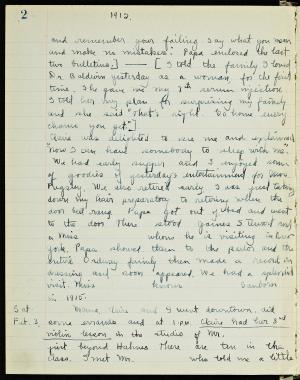 2
1912.
and remember your failing say what you mean
and make no mistakes." Papa enclosed the last
two bulletins.] — [I told the family I loved
Dr. Baldwin yesterday as a woman for the first
time. She gave me my 7th serum injection.
I told her my plan for surprising my family
and she said "That's right. Go home every
chance you get."]
Claire was delighted to see me and exclaimed
"Now I can have somebody to sleep with me."
We had early supper and I enjoyed some
of goodies of yesterday's entertainment for Mrs.
We also retired early. I was just taking
down my hair preparatory to retiring when the
door bell rang. Papa got out of bed and went
to the door. There stood Gaines Steward and
a Miss whom he is visiting in New
York. Papa showed them to the parlor and the
entire family then made a record in
dressing and soon appeared. We had a splendid
visit. Miss knows Sanborn
in 1915.
Sat. Mama, Claire and I went downtown, did
Feb. 3, some errands and at 1 P.M. Claire had her 3rd
violin lesson in the studio of Mr.
just beyond Halmes. There are ten in the
class. I met Mr. who told me a little